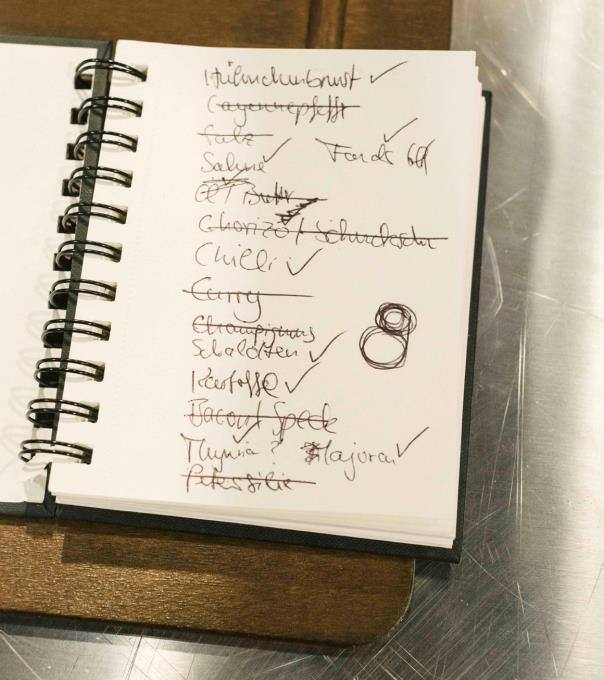 Hühnchenbrust ✓
Cayennepfeffer
Salz
Sahne ✓ Fond ✓
Öl / Butter
Chorizo /
Chilli ✓
Curry
Champignons
Schalotten ✓
Kartoffel ✓
Bacon / Speck
Thymia ? Majoran ✓
Petersilie
8